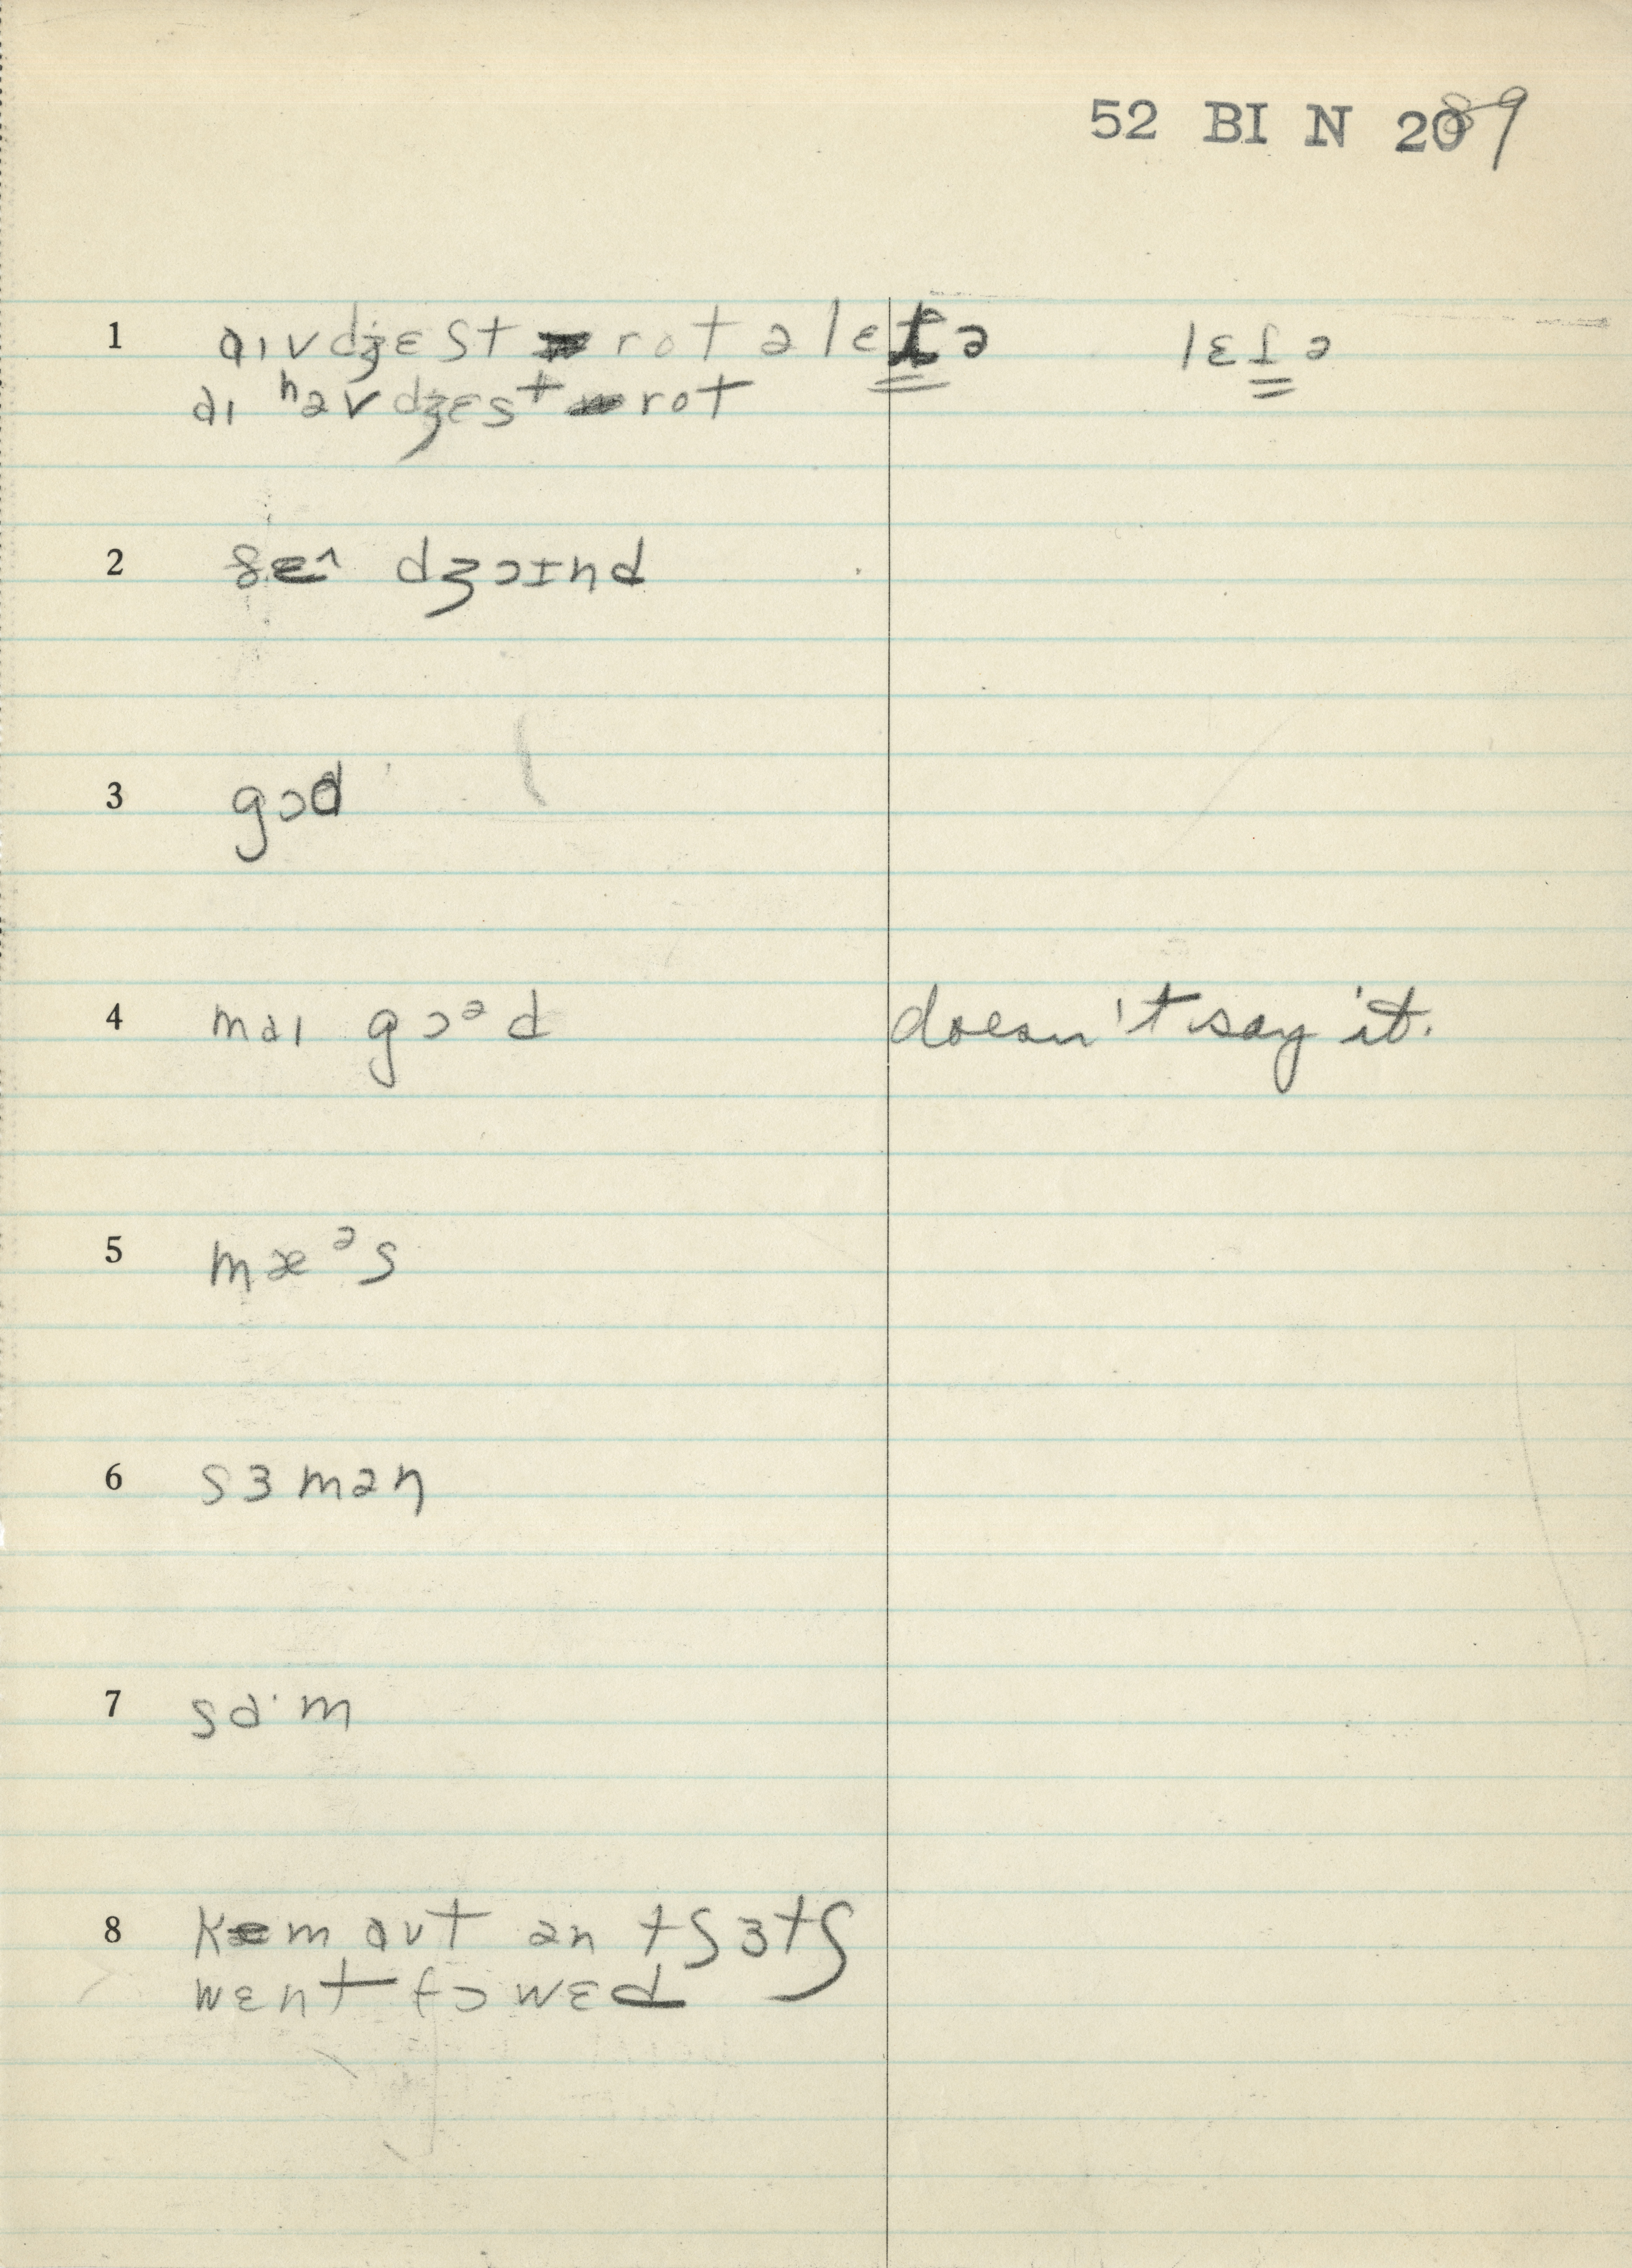 52 BI N 2089
1 aɪv dʒɛst rot ə lɛtə lɛtə
aɪ həv dʒɛst rot
2 ðe^ dʒɔɪnd
3 gɔd
4 maɪ gɔᵊd doesn't say it.
5 mæᵊs
6 sɜmən
7 sa·m
8 kem aʊt ən tʃɜtʃ
wɛnt fɔwɛd